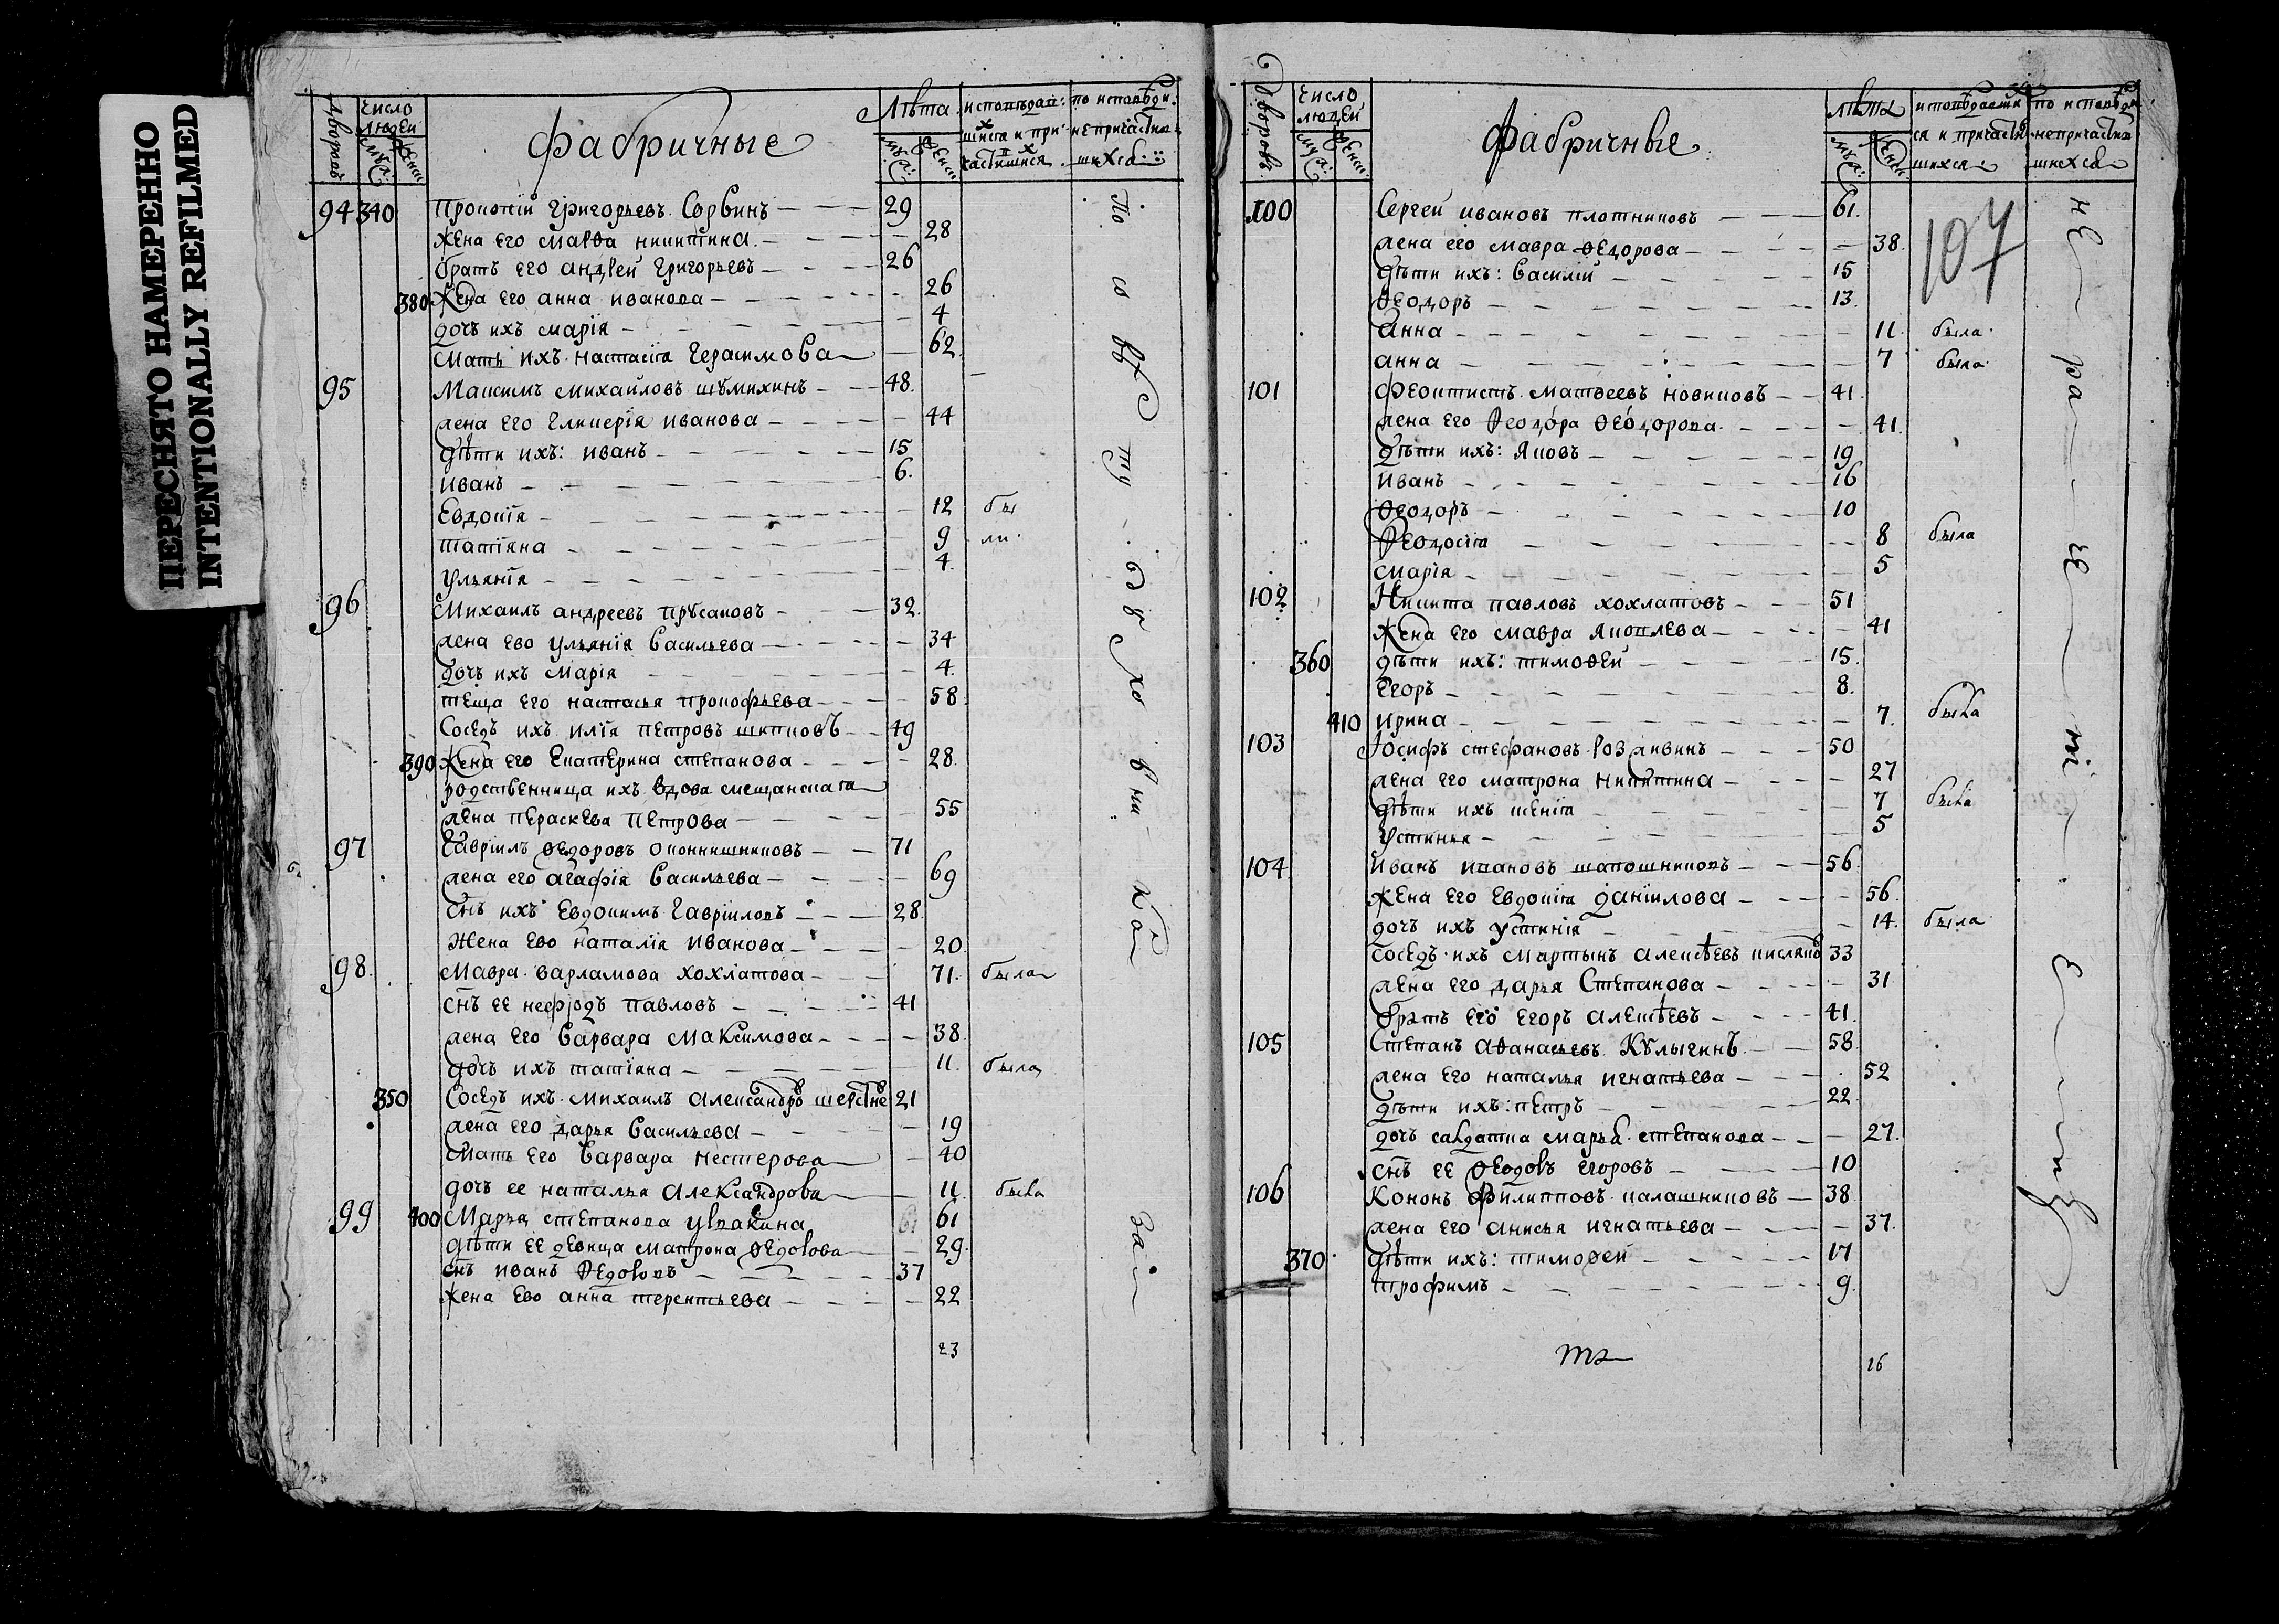 ПЕРЕСНЯТО НАМЕРЕННО
INTENTIONALLY REFILMED
Дворовъ
Число людей
муж:
женск:
фабричные
Лѣта
муж:
женск:
исповѣдав:шихся и причастившихся
по исповѣди непричастившихся
94 340 Прокопїй григорьевъ Сорвинъ 29
жена его марѳа никитина 28
братъ его андрей григорьевъ 26
380 жена его анна иванова 26
дочь ихъ марїя 4
мать ихъ настасїя герасимова 62
95 Максимъ михайловъ шꙋмихинъ 48
жена его гликерїя иванова 44
дѣти ихъ: иванъ 15
иванъ 6
Евдокїя 12 бы
татїяна 9 ли
ульянїя 4
96 Михаилъ андреевъ прꙋсаковъ 32
жена ево ульянїя васильева 34
дочь ихъ марїя 4
теща его настасья прокофьева 58
Соседъ ихъ илїя петровъ шитиковъ 49
390 жена его Екатерина степанова 28
родственница ихъ вдова мещанскага
жена пераскева петрова 55
97 Гаврїилъ ѳедоровъ оконнишниковъ 71
жена его агафїя васильева 69
снъ ихъ Евдокимъ гаврїиловъ 28
Жена ево наталїя иванова 20
98 Мавра варламова хохлатова 71 была
снъ ее нефїодъ павловъ 41
жена его варвара максимова 38
дочь ихъ татїяна 11 была
350 Соседъ ихъ михаилъ александровъ 21
жена его дарья васильева 19
мать его варвара нестерова 40
дочь ее наталья александрова 11 была
99 400 Марья степанова 61
дѣти ее девица матрона ѳедорова 29
снъ иванъ ѳедоровъ 37
жена ево анна терентьева 22
23
По со вѣ ту
ду хо вни ка
Дворовъ
Число людей
муж:
женск:
фабричные
лѣта
муж:
женск:
исповѣдавшихся и причастившихся
по исповѣди непричастившихся
107
100 Сергей ивановъ плотниковъ 61
жена его мавра ѳедорова 38
дѣти ихъ: василїй 15
ѳеодоръ 13
анна 11 была
анна 7 была
101 Феоктистъ матвеевъ новиковъ 41
жена его ѳеодора ѳеодорова 41
дѣти ихъ: яковъ 19
иванъ 16
ѳеодоръ 10
ѳеодосїя 8 была
марїя 5
102 Никита павловъ хохлатовъ 51
жена его мавра яковлева 41
360 дѣти ихъ: тимоѳей 15
егоръ 8
410 ирина 7 была
103 Іосифъ стефановъ розживинъ 50
жена его матрона никитина 27
дѣти ихъ ксенїя 7 была
устинья 5
104 иванъ ивановъ шапошниковъ 56
жена его евдокїя данїилова 56
дочь ихъ устинїя 14 была
соседъ ихъ мартынъ алексѣевъ 33
жена его дарья степанова 31
братъ его егоръ алексѣевъ 41
105 Степанъ аѳанасьевъ кꙋлыгинъ 58
жена его наталья игнатьева 52
дѣти ихъ: петръ 22
дочь салдатка марья степанова 27
снъ ее ѳеодоръ егоровъ 10
106 Кононъ филипповъ калашниковъ 38
жена его анисья игнатьева 37
370 дѣти ихъ: тимоѳей 17
трофимъ 9
16